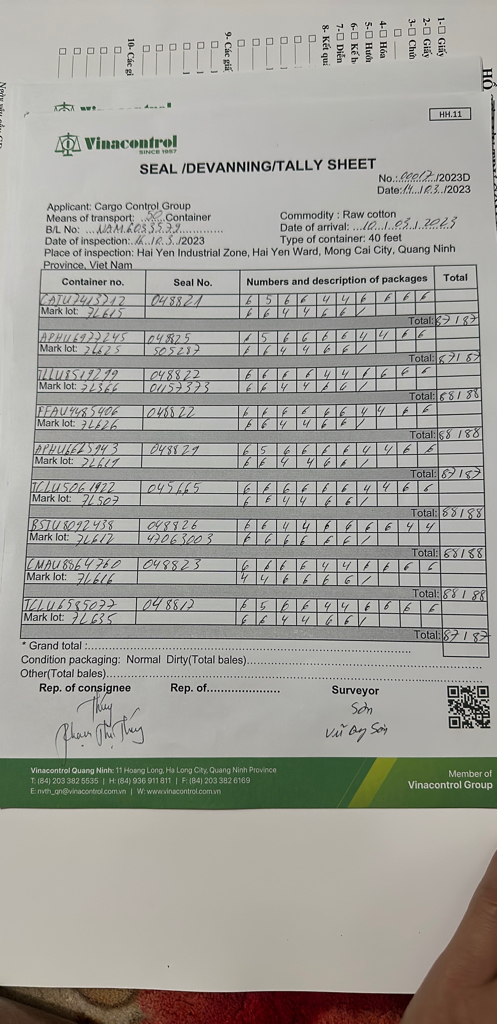 HH.11
Vinacontrol
SINCE 1957
SEAL /DEVANNING/TALLY SHEET
No.:00017/2023D
Date:14/03/2023
Applicant: Cargo Control Group
Means of transport: 50 Container
Commodity : Raw cotton
B/L No: NAM6053579
Date of arrival: 10/03/2023
Date of inspection: /03/2023
Type of container: 40 feet
Place of inspection: Hai Yen Industrial Zone, Hai Yen Ward, Mong Cai City, Quang Ninh
Province, Viet Nam
Container no. Seal No. Numbers and description of packages Total
CAIU7413712 048821 6 5 6 6 4 4 6 6 6 6
Mark lot: 7L615 6 6 4 4 6 6 /
Total: 87187
APHU6977245 048825 6 5 6 6 6 6 4 4 6 6
Mark lot: 7L625 505287 6 6 4 4 6 6 /
Total: 87187
TLLU8519299 048822 6 6 6 6 4 4 6 6 6 6
Mark lot: 7L566 01157373 6 6 4 4 6 6 /
Total: 88188
FFAU4485406 048822 6 6 6 6 6 6 4 4 6 6
Mark lot: 7L626 6 6 4 4 6 6 /
Total: 88188
APHU6625943 048829 6 5 6 6 6 6 4 4 6 6
Mark lot: 7L619 6 6 4 4 6 6 /
Total: 87187
TCLU5061922 045665 6 6 6 6 6 6 4 4 6 6
Mark lot: 7L507 6 6 4 4 6 6 /
Total: 88188
BSIU8092438 048826 6 6 4 4 6 6 6 6 4 4
Mark lot: 7L612 47063003 6 6 6 6 6 6 /
Total: 88188
CMAU8864760 048823 6 6 6 6 4 4 6 6 6 6
Mark lot: 7L616 4 4 6 6 6 6 /
Total: 88188
TCLU6585077 048817 6 5 6 6 4 4 6 6 6 6
Mark lot: 7L635 6 6 4 4 6 6 /
Total: 87187
* Grand total :
Condition packaging: Normal Dirty(Total bales)
Other(Total bales)
Rep. of consignee Rep. of Surveyor
Thúy Sơn
Phạm Thị Thúy Vũ Duy Sơn
Vinacontrol Quang Ninh: 11 Hoang Long, Ha Long City, Quang Ninh Province
T: (84) 203 382 5535 | H: (84) 936 911 811 | F: (84) 203 382 6169
E: nvth_qn@vinacontrol.com.vn | W: www.vinacontrol.com.vn
Member of
Vinacontrol Group